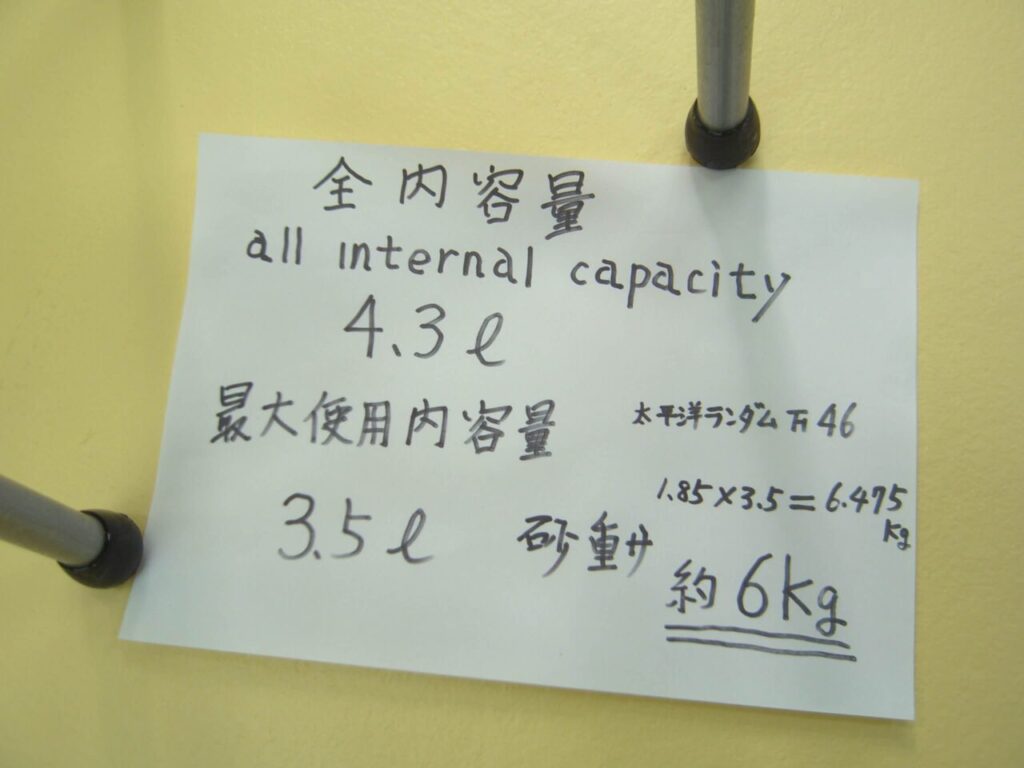 全内容量
all internal capacity
4.3ℓ
最大使用内容量
3.5ℓ
太平洋ランダム 万46
1.85×3.5=6.475
kg
砂重サ
約6kg